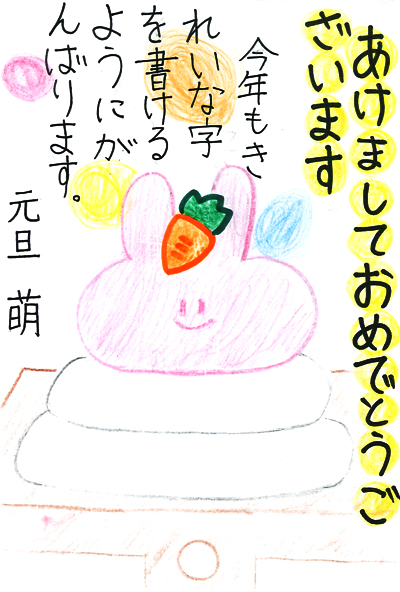 あけましておめでとうご
ざいます
今年もき
れいな字
を書ける
ようにが
んばります。
元旦 萌